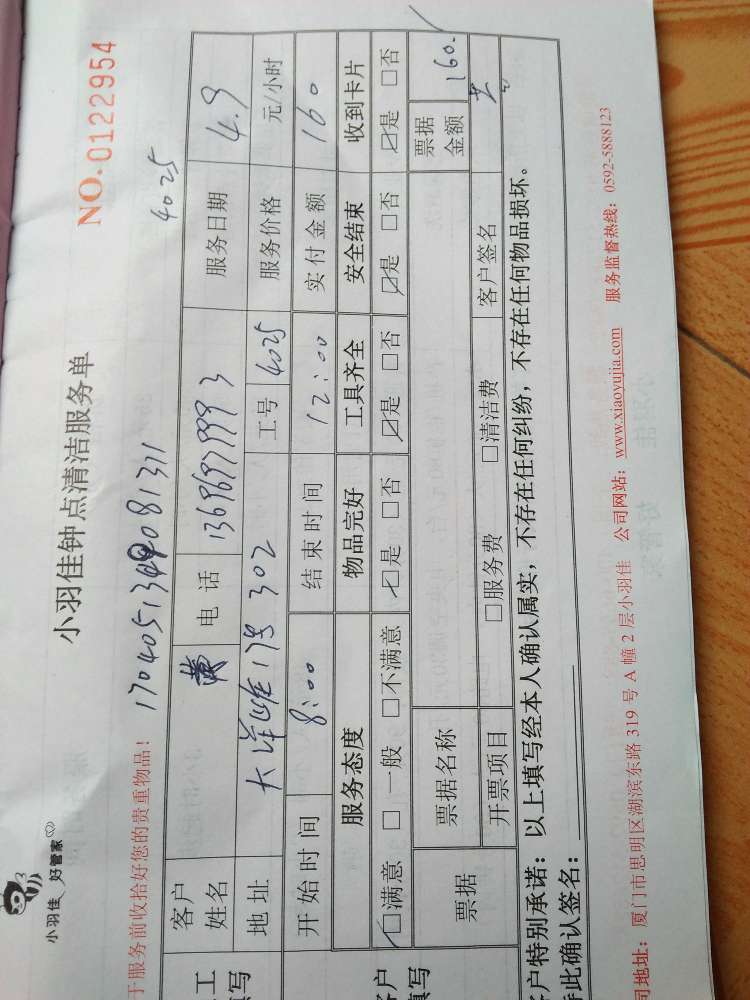 小羽佳 好管家
小羽佳钟点清洁服务单
NO.0122954
于服务前收拾好您的贵重物品!
4025
工
填写
客户姓名 黄 电话 服务日期 4.9
地址 大洋唯 302 工号 4025 服务价格 元/小时
开始时间 8:00 结束时间 12:00 实付金额 160
客户
填写
服务态度 物品完好 工具齐全 安全结束 收到卡片
☑满意 □一般 □不满意 ☑是 □否 ☑是 □否 ☑是 □否 ☑是 □否
票据 票据名称 票据金额 160.
开票项目 □服务费 □清洁费 客户签名
户特别承诺:以上填写经本人确认属实,不存在任何纠纷,不存在任何物品损坏。
特此确认签名:
司地址:厦门市思明区湖滨东路 319 号 A 幢 2 层小羽佳 公司网站:www.xiaoyujia.com 服务监督热线:0592-5888123